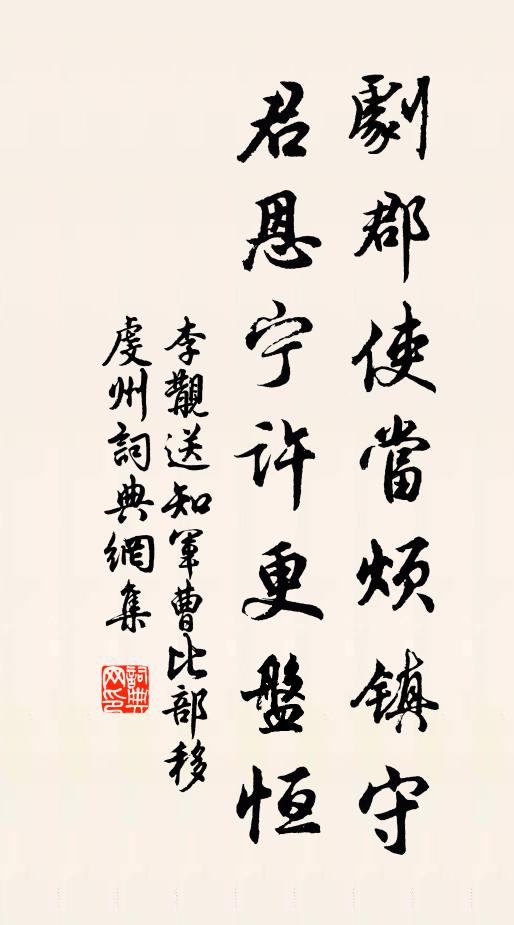 劇郡使當煩鎮守
君恩宁許更盤恒
李覯送知軍曹比部移
虔州詞典網集
詞典网印